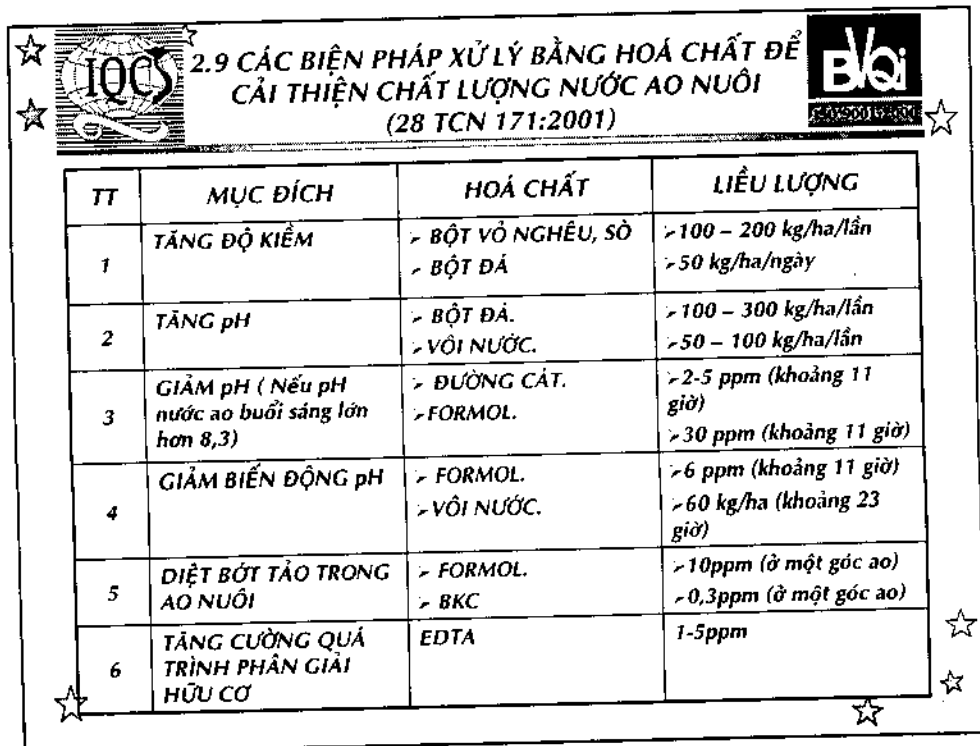 IQCS
2.9 CÁC BIỆN PHÁP XỬ LÝ BẰNG HOÁ CHẤT ĐỂ
CẢI THIỆN CHẤT LƯỢNG NƯỚC AO NUÔI
(28 TCN 171:2001)
BVQi
ISO 9001:2000
TT MỤC ĐÍCH HOÁ CHẤT LIỀU LƯỢNG
1
TĂNG ĐỘ KIỀM
➢ BỘT VỎ NGHÊU, SÒ
➢ BỘT ĐÁ
➢100 – 200 kg/ha/lần
➢50 kg/ha/ngày
2
TĂNG pH
➢ BỘT ĐÁ.
➢VÔI NƯỚC.
➢100 – 300 kg/ha/lần
➢50 – 100 kg/ha/lần
3
GIẢM pH ( Nếu pH
nước ao buổi sáng lớn
hơn 8,3)
➢ ĐƯỜNG CÁT.
➢FORMOL.
➢2-5 ppm (khoảng 11
giờ)
➢30 ppm (khoảng 11 giờ)
4
GIẢM BIẾN ĐỘNG pH
➢ FORMOL.
➢VÔI NƯỚC.
➢6 ppm (khoảng 11 giờ)
➢60 kg/ha (khoảng 23
giờ)
5
DIỆT BỚT TẢO TRONG
AO NUÔI
➢ FORMOL.
➢ BKC
➢10ppm (ở một góc ao)
➢0,3ppm (ở một góc ao)
6
TĂNG CƯỜNG QUÁ
TRÌNH PHÂN GIẢI
HỮU CƠ
EDTA
1-5ppm